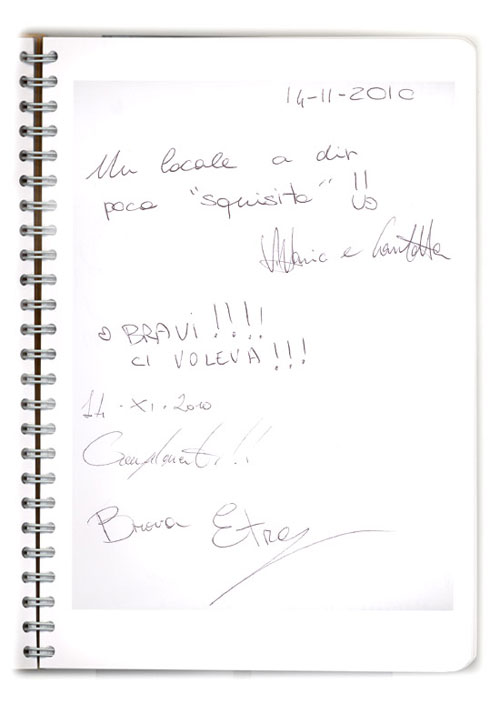 14-11-2010
Un locale a dir
poco "squisito" !!
Mario e Carlotta
BRAVI !!!!
CI VOLEVA!!!
14·XI·2010
Complimenti!!
Buona Etra